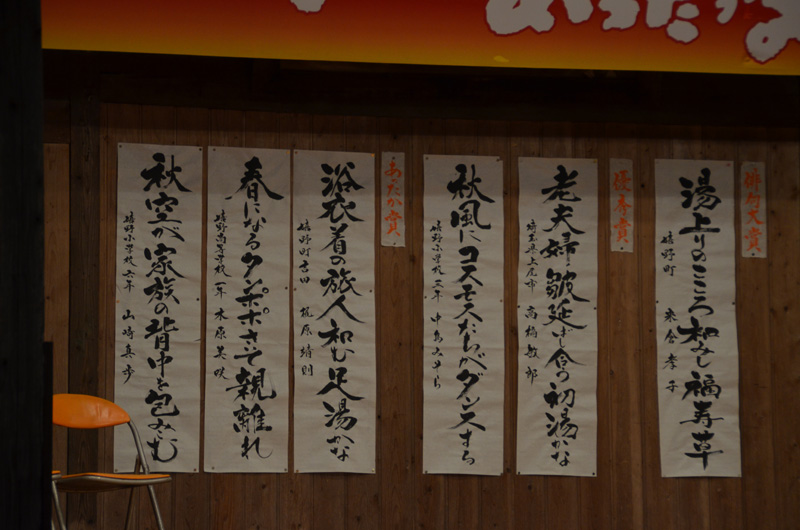 あったか
俳句大賞
湯上りのこころ和みし福寿草
嬉野町 孝子
優秀賞
老夫婦皺延ばし合う初湯かな
埼玉県上尾市 高橋敏郎
秋風にコスモスたちがダンスする
嬉野小学校三年
あったか賞
浴衣着の旅人和む足湯かな
嬉野町吉田 梶原晴則
春になるタンポポさえぞ親離れ
嬉野高等学校一年 木原美咲
秋空が家族の背中を包みこむ
嬉野小学校六年 山崎真歩